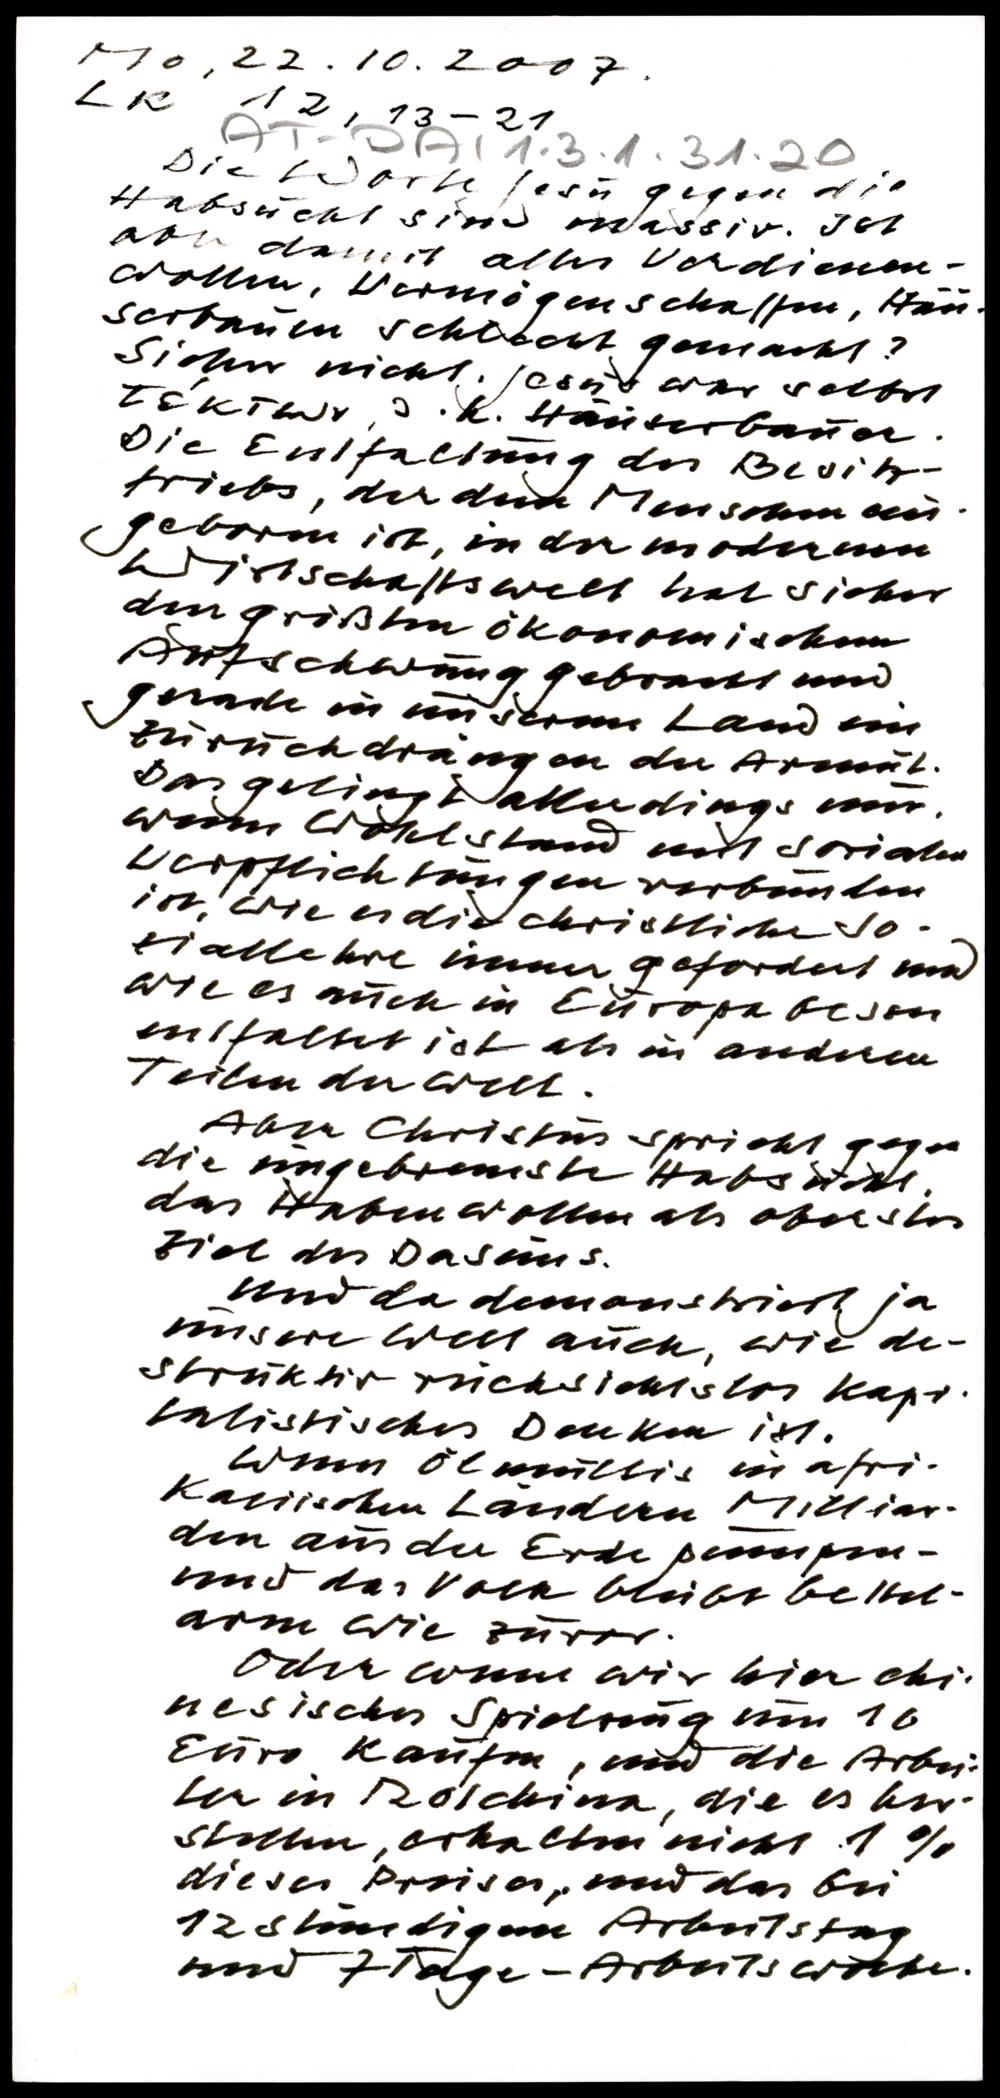 Mo, 22.10.2007.
LK 12, 13-21
AT-DAI 1.3.1.31.20
Die Worte Jesu gegen die
Habsucht sind massiv. Ist
aber damit alles Verdienen-
wollen, Vermögenschaffen, Häu-
serbauen schlecht gemacht?
Sicher nicht. Jesus war selbst
Téktwv, d.h. Häuserbauer.
Die Entfaltung des Besitz-
triebs, der dem Menschen ein-
geboren ist, in der modernen
Wirtschaftswelt hat sicher
den größten ökonomischen
Aufschwung gebracht und
gerade in unserem Land ein
Zurückdrängen der Armut.
Das gelingt allerdings nur,
wenn Wohlstand mit sozialen
Verpflichtungen verbunden
ist, wie es die christliche So-
ziallehre immer gefordert und
wie es auch in Europa besser
entfaltet ist als in anderen
Teilen der Welt.
Aber Christus spricht gegen
die ungebremste Habsucht,
das Habenwollen als oberstes
Ziel des Daseins.
Und da demonstriert ja
unsere Welt auch, wie de-
struktiv rücksichtsloses kapi-
talistisches Denken ist.
Wenn Ölmultis in afri-
kanischen Ländern Milliar-
den aus der Erde pumpen-
und das Volk bleibt bettel-
arm wie zuvor.
Oder wenn wir hier chi-
nesisches Spielzeug um 10
Euro kaufen, und die Arbei-
ter in Rotchina, die es her-
stellen, erhalten nicht 1%
dieses Preises, und das bei
12stündigem Arbeitstag
und 7Tage-Arbeitswoche.